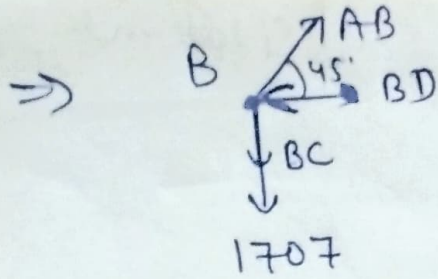 ⇒ B AB
45° BD
BC
1707